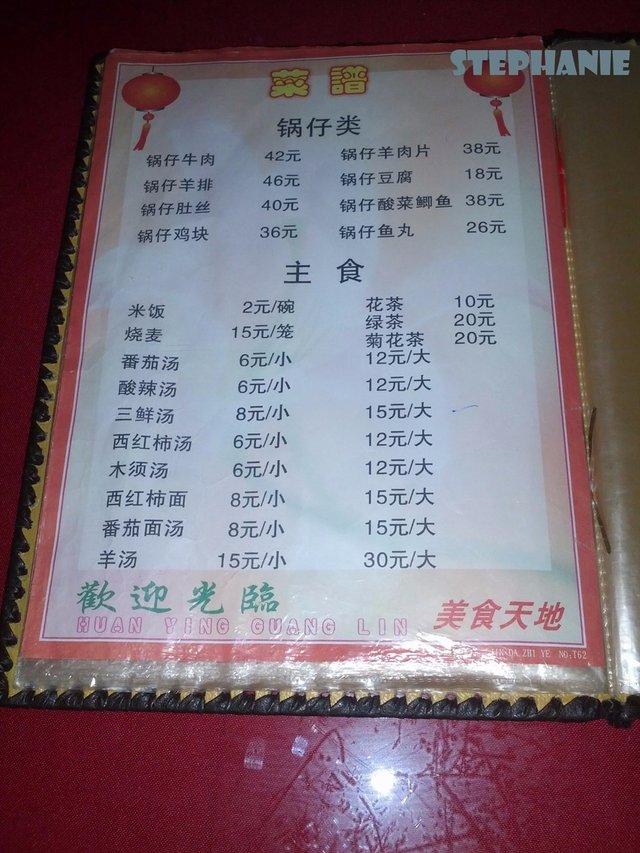 STEPHANIE
菜譜
锅仔类
锅仔牛肉 42元 锅仔羊肉片 38元
锅仔羊排 46元 锅仔豆腐 18元
锅仔肚丝 40元 锅仔酸菜鲫鱼 38元
锅仔鸡块 36元 锅仔鱼丸 26元
主食
米饭 2元/碗 花茶 10元
绿茶 20元
烧麦 15元/笼 菊花茶 20元
番茄汤 6元/小 12元/大
酸辣汤 6元/小 12元/大
三鲜汤 8元/小 15元/大
西红柿汤 6元/小 12元/大
木须汤 6元/小 12元/大
西红柿面 8元/小 15元/大
番茄面汤 8元/小 15元/大
羊汤 15元/小 30元/大
歡迎光臨
HUAN YING GUANG LIN 美食天地
DA ZHI YE NO:T62